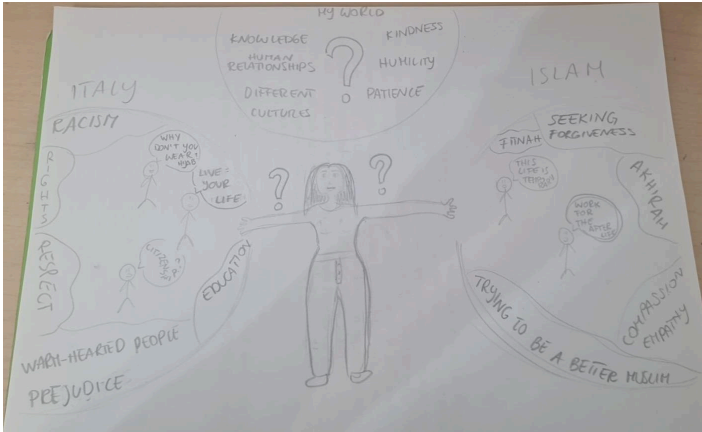 MY WORLD
KNOWLEDGE
HUMAN
RELATIONSHIPS
DIFFERENT
CULTURES
?
KINDNESS
HUMILITY
PATIENCE
ITALY
RACISM
RIGHTS
RESPECT
WHY
DON'T YOU
WEAR
LOVE
YOUR
LIFE
EDUCATION
WARM-HEARTED PEOPLE
PREJUDICE
?
?
ISLAM
FITNAH
SEEKING
FORGIVENESS
THIS
LIFE IS
WORK
FOR
THE
AFTER
LIFE
AKHIRAH
COMPASSION
EMPATHY
TRYING TO BE A BETTER MUSLIM